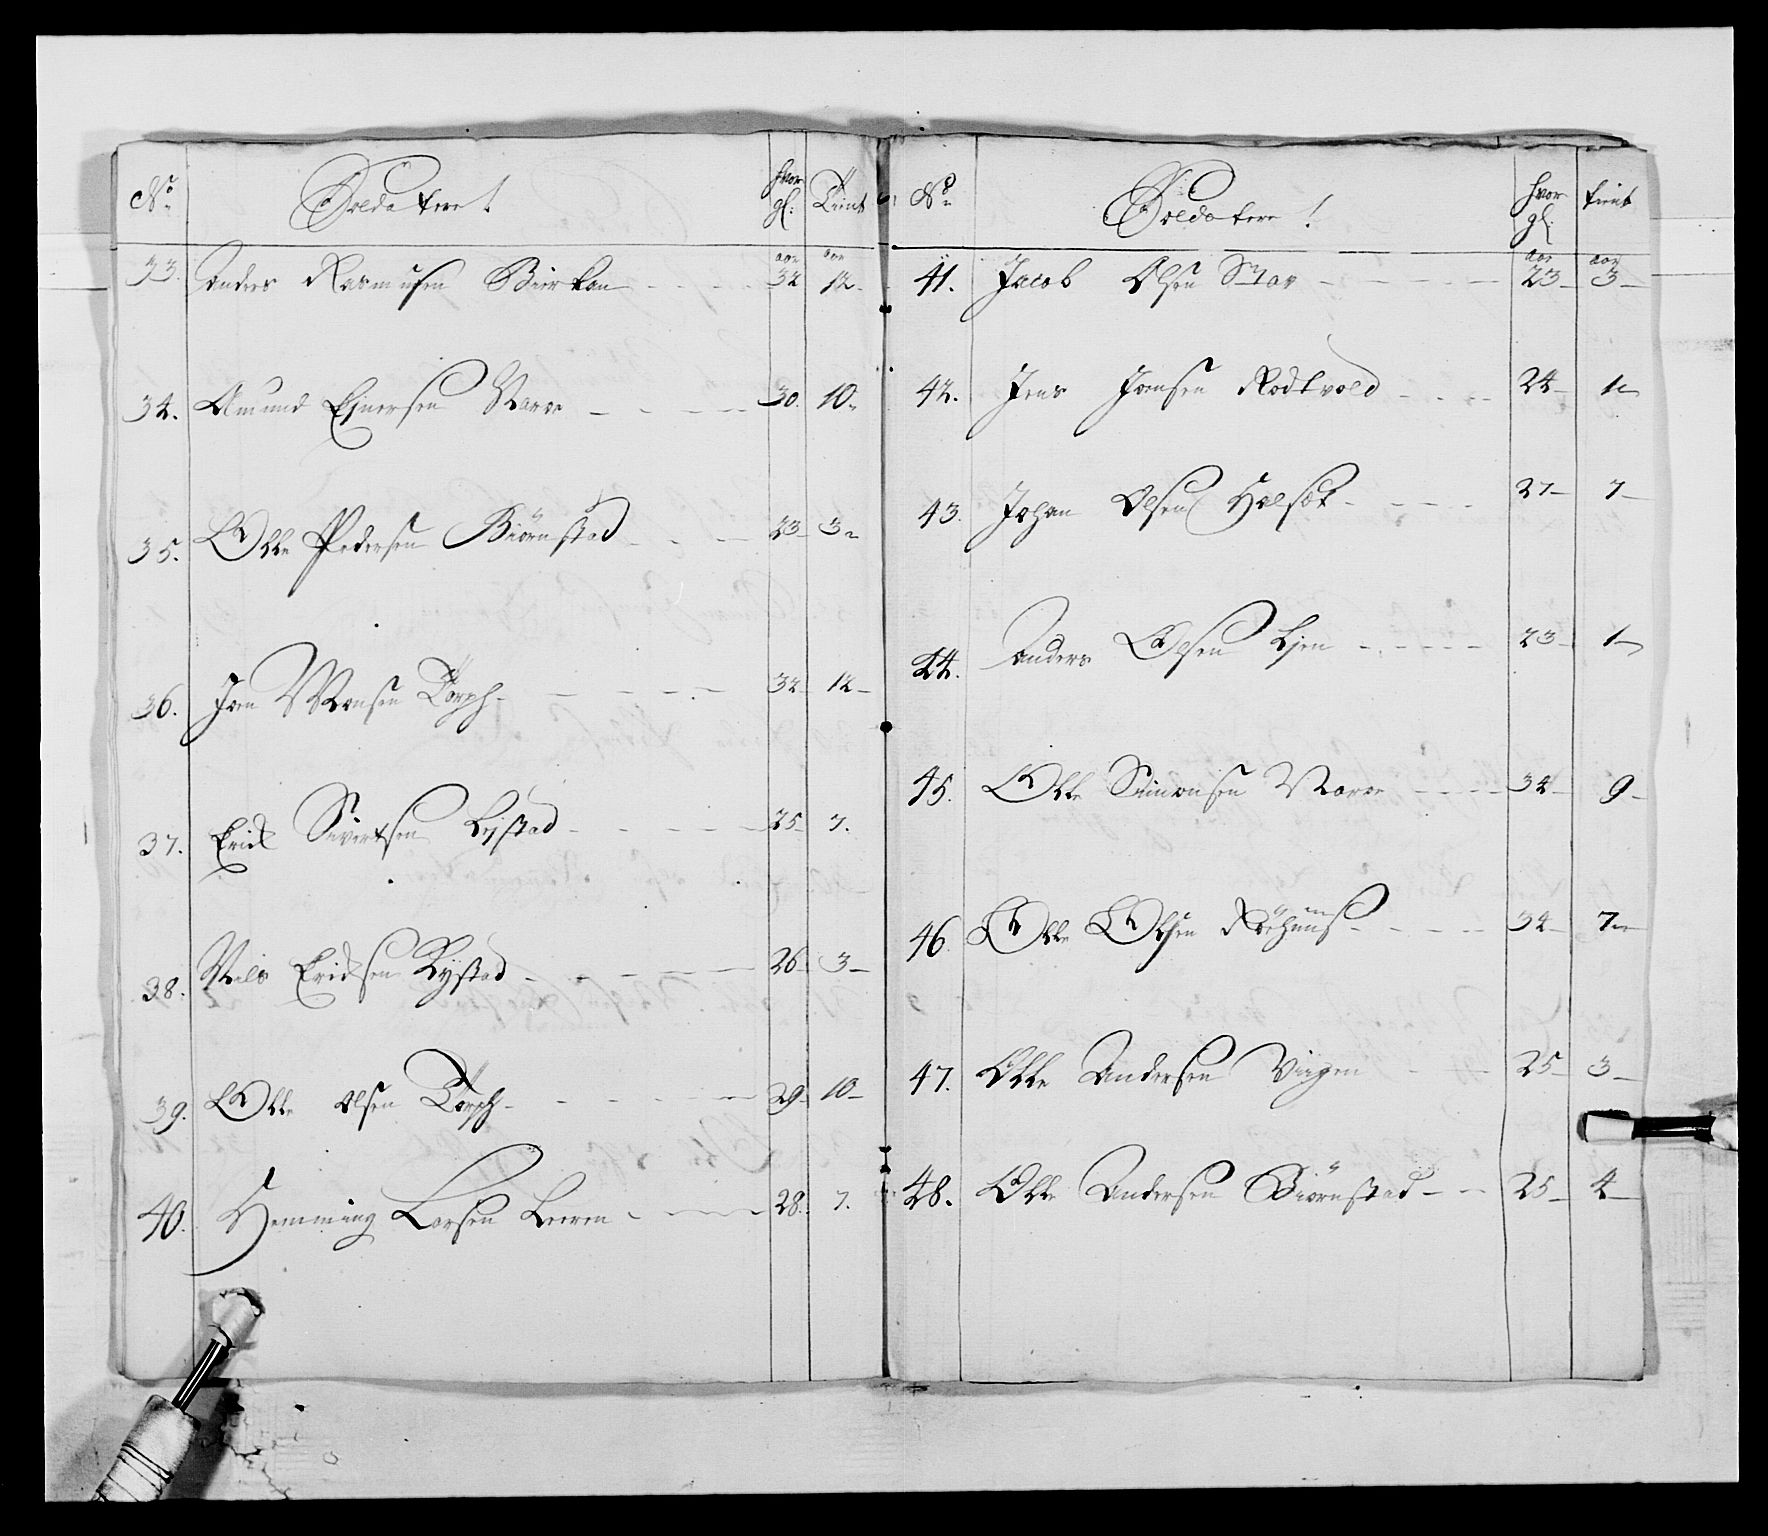 No Soldatere! hvor gl: Tient
aar aar
33. Anders Rasmusen Birkan 32 12
34. Amund Ejnersen Narve 30. 10
35. Olle Pedersen Biörnstad 23 3
36. Jon Monsen Torph 32 12
37. Erick Sivertsen Lystad 25 7.
38. Nels Ericksen Rystad 26 3
39. Olle Olsen Torph 29 10
40. Hemming Larsen Leeren 28. 7.
No Soldatere! hvor gl: tient
aar aar
41. Jacob Olsen Mar 23 3
42. Jens Jonsen Rodtvold 24 1
43. Johan Olsen Halset 27 7
44. Anders Olsen Lien 23 1
45. Olle Simonsen Narve 34 9
46. Olle Olsen 34 7
47. Olle Andersen Viigen 25 3
48. Olle Andersen Biörnstad 25 4